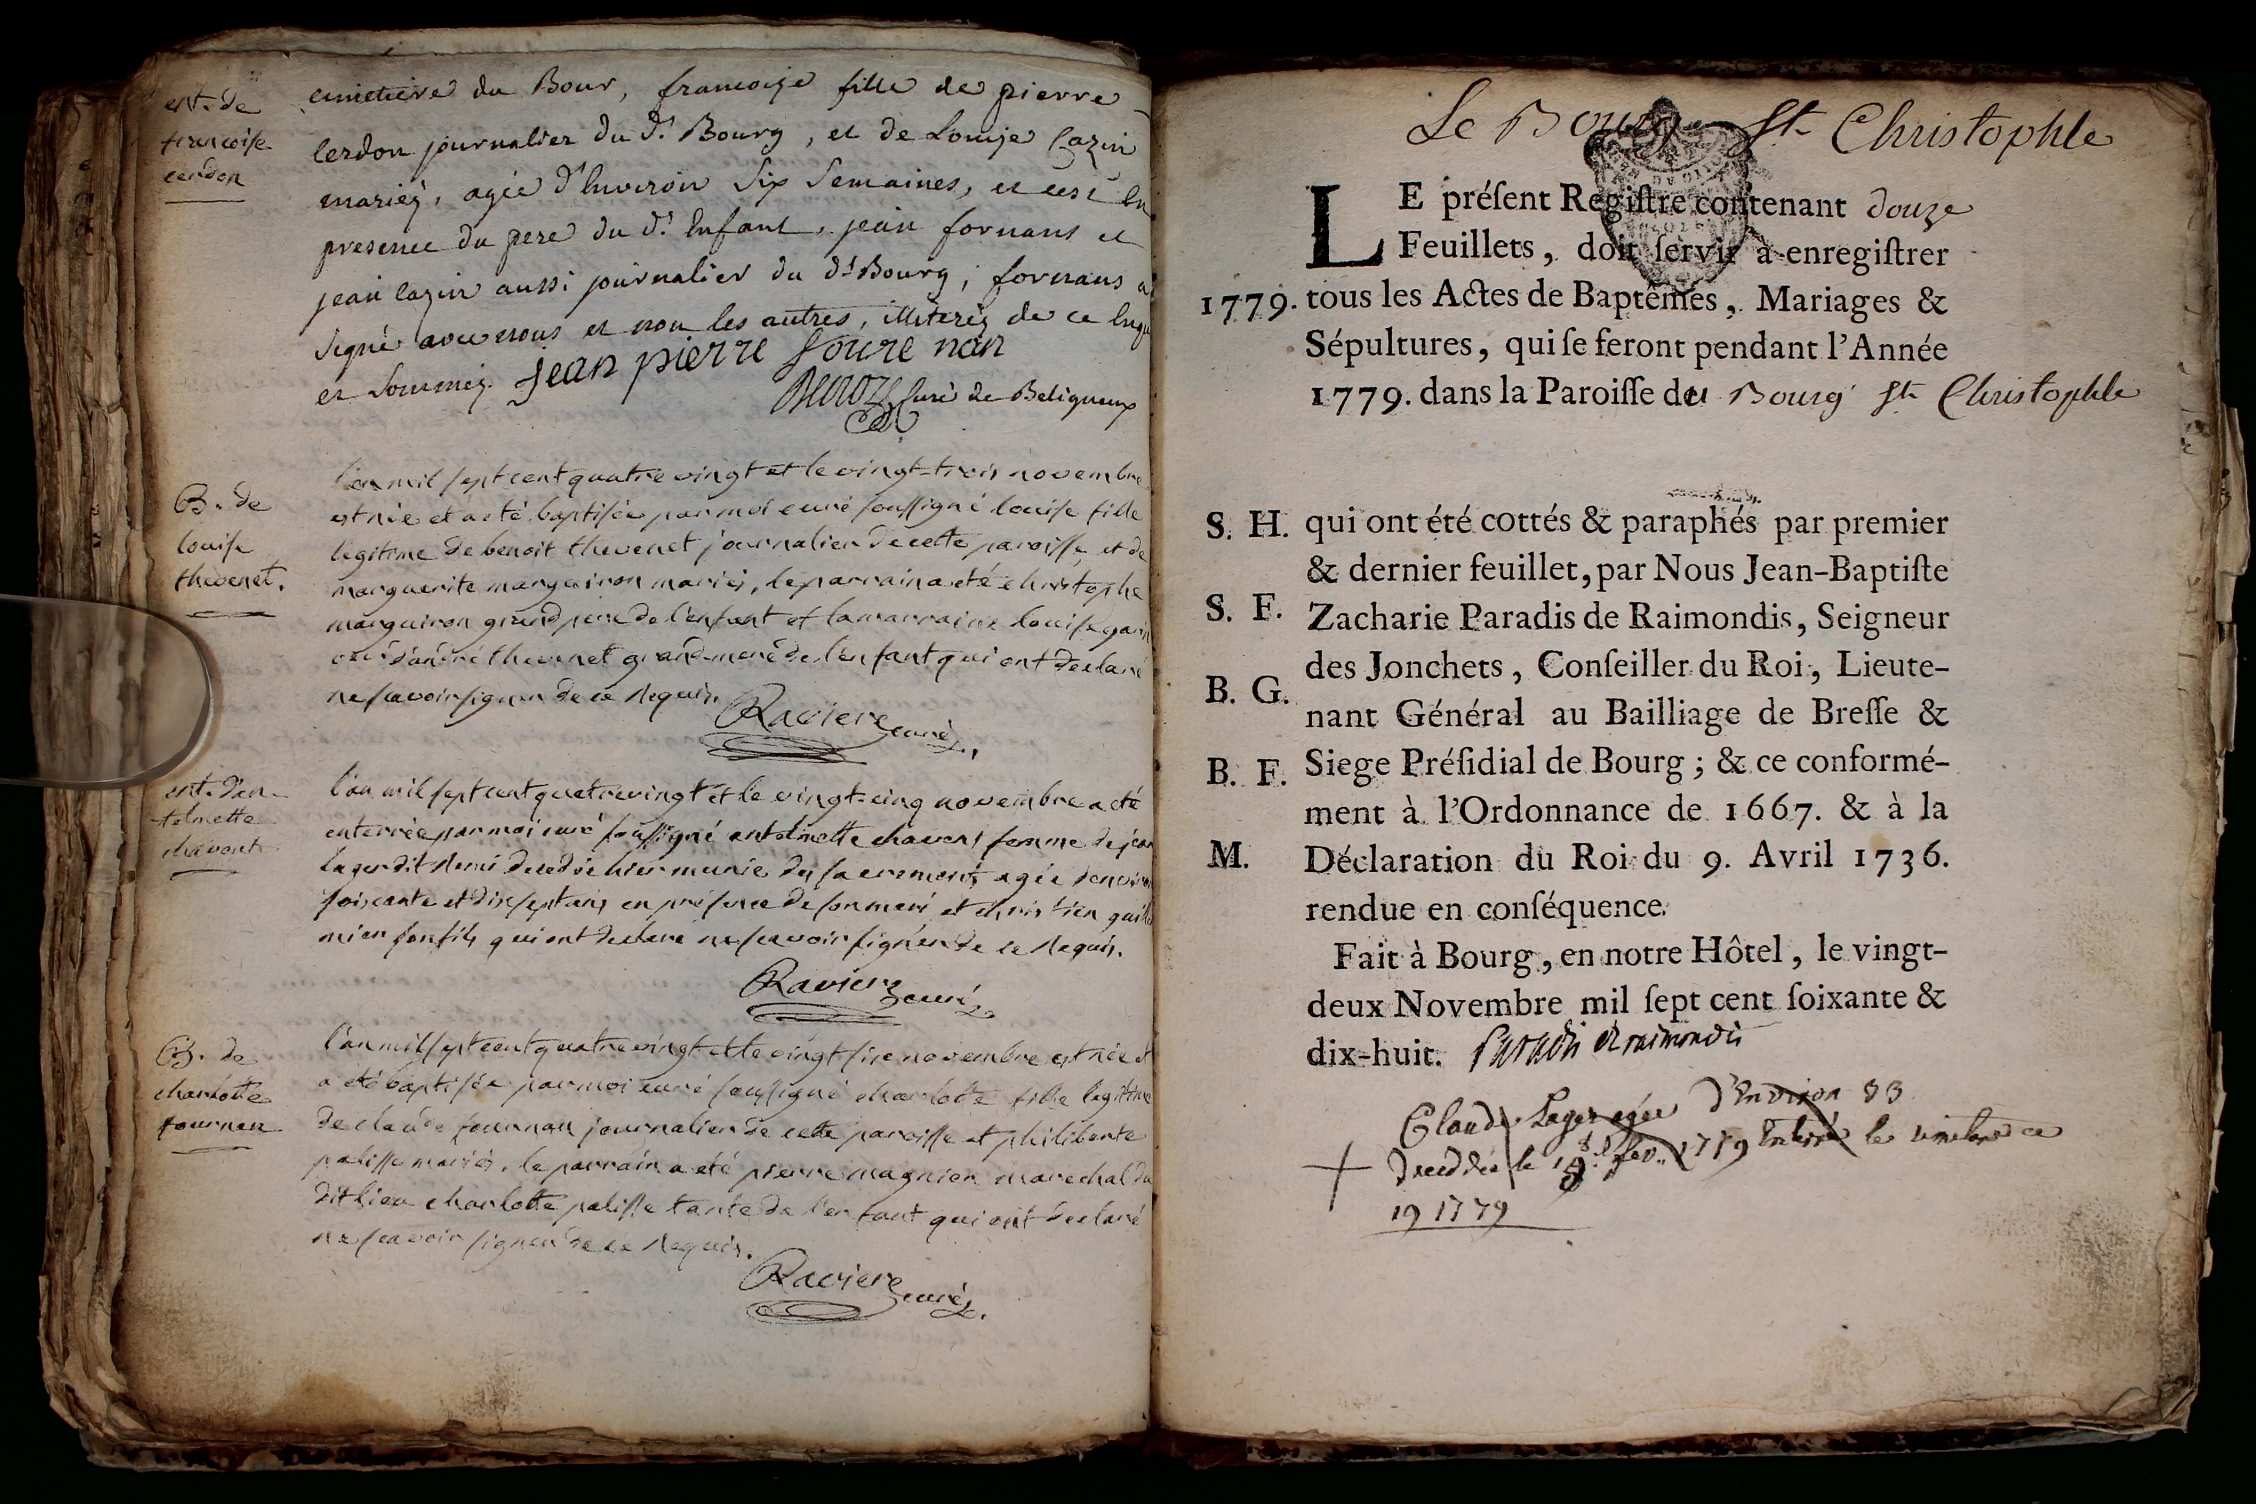 ent. de
francoise
cerdon
cimetiere du Bour, francoise fille de pierre
Cerdon journalier du d.t Bourg, et de Louise Cazin
mariéz, agée d'Environ Six Semaines, et cest En
presence du pere du d.t Enfant, jean fornans et
jean Cazin aussi journalier du d.t Bourg, fornans a
Signé avec nous et non les autres, illiteréz de ce Enqu
et Sommez. jean pierre foure nan
Curé de Beligneux
B. de
louise
thevenet.
l'an mil sept cent quatre vingt et le vingt-trois novembre
est née et a eté baptisée par moi curé soussigné louise fille
legitime de benoit thevenet journalier de cette paroisse, et de
marguerite marguiron mariés, le parrain a eté christophe
marguiron grand pere de l'enfant et la marraine louise
d'andré thevenet grand-mere de l'enfant qui ont declaré
ne scavoir signer de ce Requis.
Raviere curé.
ent. d'an-
-toinette
chavent
l'an mil sept cent quatre vingt et le vingt-cinq novembre a eté
enterrée par moi curé soussigné antoinette chavent femme de jean
lager dit Remi decedée hier munie des sacrements agée d'environ
soixante et dix sept ans en présence de son mari et christien
son fils qui ont declaré ne scavoir signer de ce Requis.
Raviere curé
B. de
charlotte
fournan
l'an mil sept cent quatre vingt et le vingt six novembre est née et
a eté baptisée par moi curé soussigné charlotte fille legitime
de claude fournan journalier de cette paroisse et philiberte
palisse mariés. le parrain a eté pierre magnion marechal du
dit lieu charlotte palisse tante de l'enfant qui ont declaré
ne scavoir signer de ce Requis.
Raviere curé.
Le Bourg St Christophle
LE préſent Regiſtre contenant douze
Feuillets, doit ſervir à enregiſtrer
1779. tous les Actes de Baptêmes, Mariages &
Sépultures, qui ſe feront pendant l'Année
1779. dans la Paroiſſe du Bourg St Christophle
S. H. qui ont été cottés & paraphés par premier
& dernier feuillet, par Nous Jean-Baptiſte
S. F. Zacharie Paradis de Raimondis, Seigneur
des Jonchets, Conſeiller du Roi, Lieute-
B. G. nant Général au Bailliage de Breſſe &
B. F. Siege Préſidial de Bourg ; & ce conformé-
ment à l'Ordonnance de 1667. & à la
M. Déclaration du Roi du 9. Avril 1736.
rendue en conſéquence.
Fait à Bourg, en notre Hôtel, le vingt-
deux Novembre mil ſept cent ſoixante &
dix-huit. Paradis de raimondis
Claude Lager agée d'Environ 83
Decedée le 1779 Enterré le
19 1779